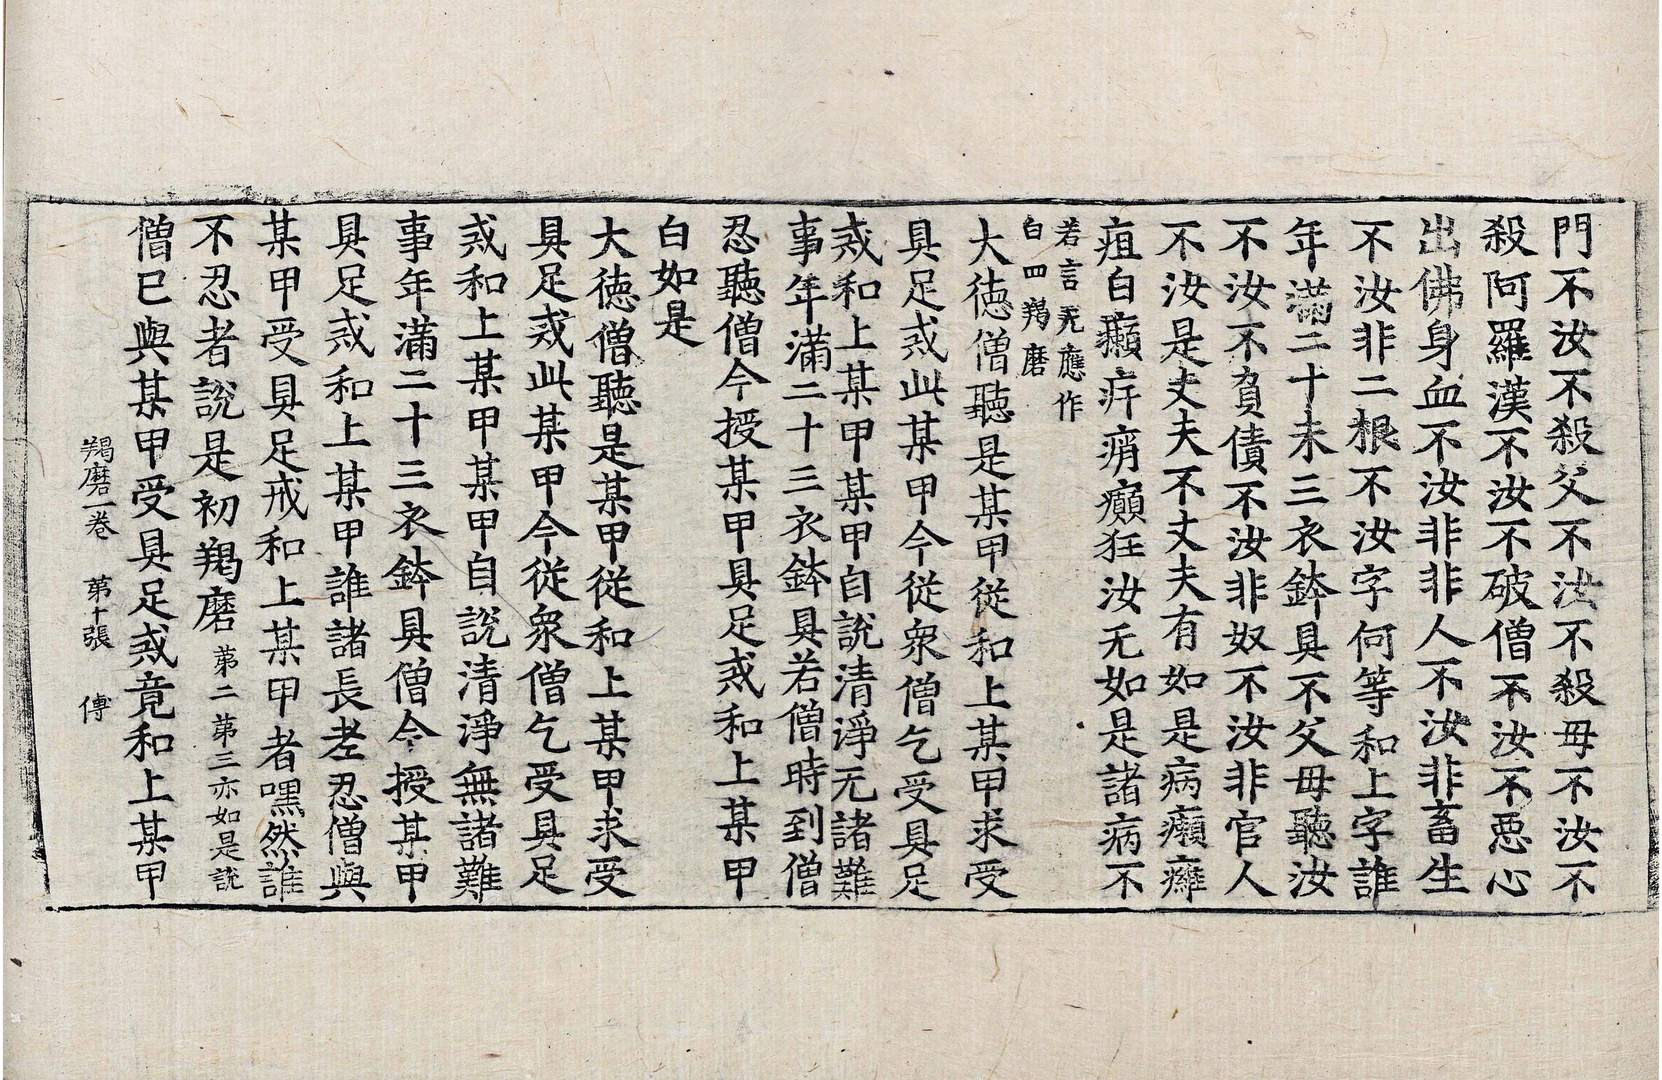 門不汝不殺父不汝不殺母不汝不
殺阿羅漢不汝不破僧不汝不惡心
出佛身血不汝非非人不汝非畜生
不汝非二根不汝字何等和上字誰
年滿二十未三衣鉢具不父母聽汝
不汝不負債不汝非奴不汝非官人
不汝是丈夫不丈夫有如是病癩癰
疽白癩痈痟癲狂汝无如是諸病不
若言无應作
白四羯磨
大德僧聽是某甲從和上某甲求受
具足戒此某甲今從衆僧乞受具足
戒和上某甲某甲自說清淨无諸難
事年滿二十三衣鉢具若僧時到僧
忍聽僧今授某甲具足戒和上某甲
白如是
大德僧聽是某甲從和上某甲求受
具足戒此某甲今從衆僧乞受具足
戒和上某甲某甲自說清淨無諸難
事年滿二十三衣鉢具僧今授某甲
具足戒和上某甲誰諸長老忍僧與
某甲受具足戒和上某甲者嘿然誰
不忍者說是初羯磨第二第三亦如是說
僧已與某甲受具足戒竟和上某甲
羯磨一卷 第十張 傅